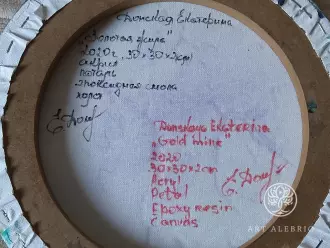 Донская Екатерина
"Золотая жила"
2020г, 30×30×2см
акрил
поталь
эпоксидная смола
холст
Dunskaya Ekaterina
"Gold mine"
2020
30×30×2cm
Acryl
Potal
Epoxy resin
Canvas
ART ALEBRIO